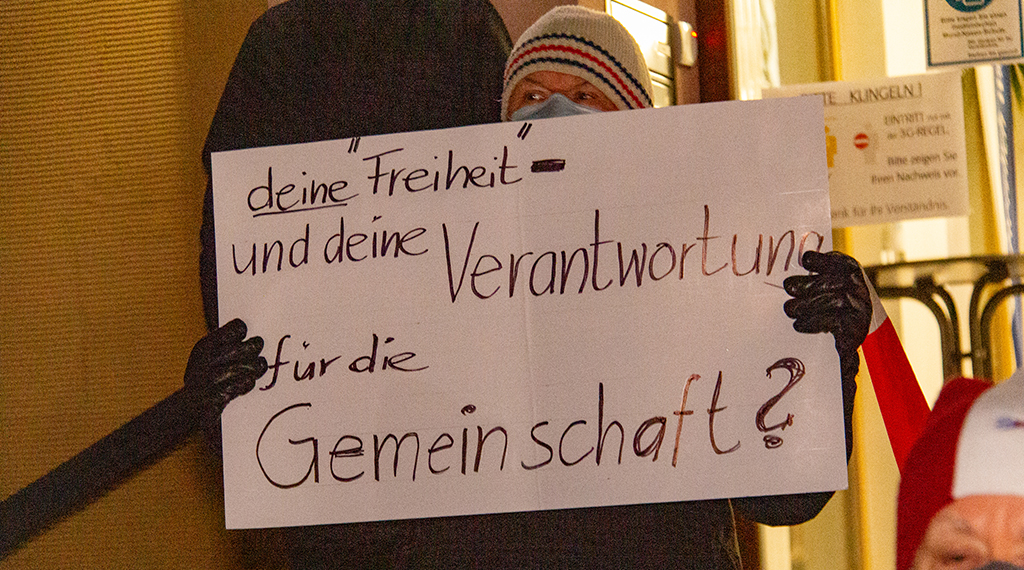 deine "Freiheit" –
und deine Verantwortung
für die
Gemeinschaft?
KLINGELN!
EINTRITT nur mit
der 3G-REGEL.
Bitte zeigen Sie
Ihren Nachweis vor.
für Ihr Verständnis.
Bitte tragen Sie einen